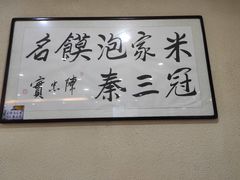 米家泡饃名
冠三秦
陳忠實